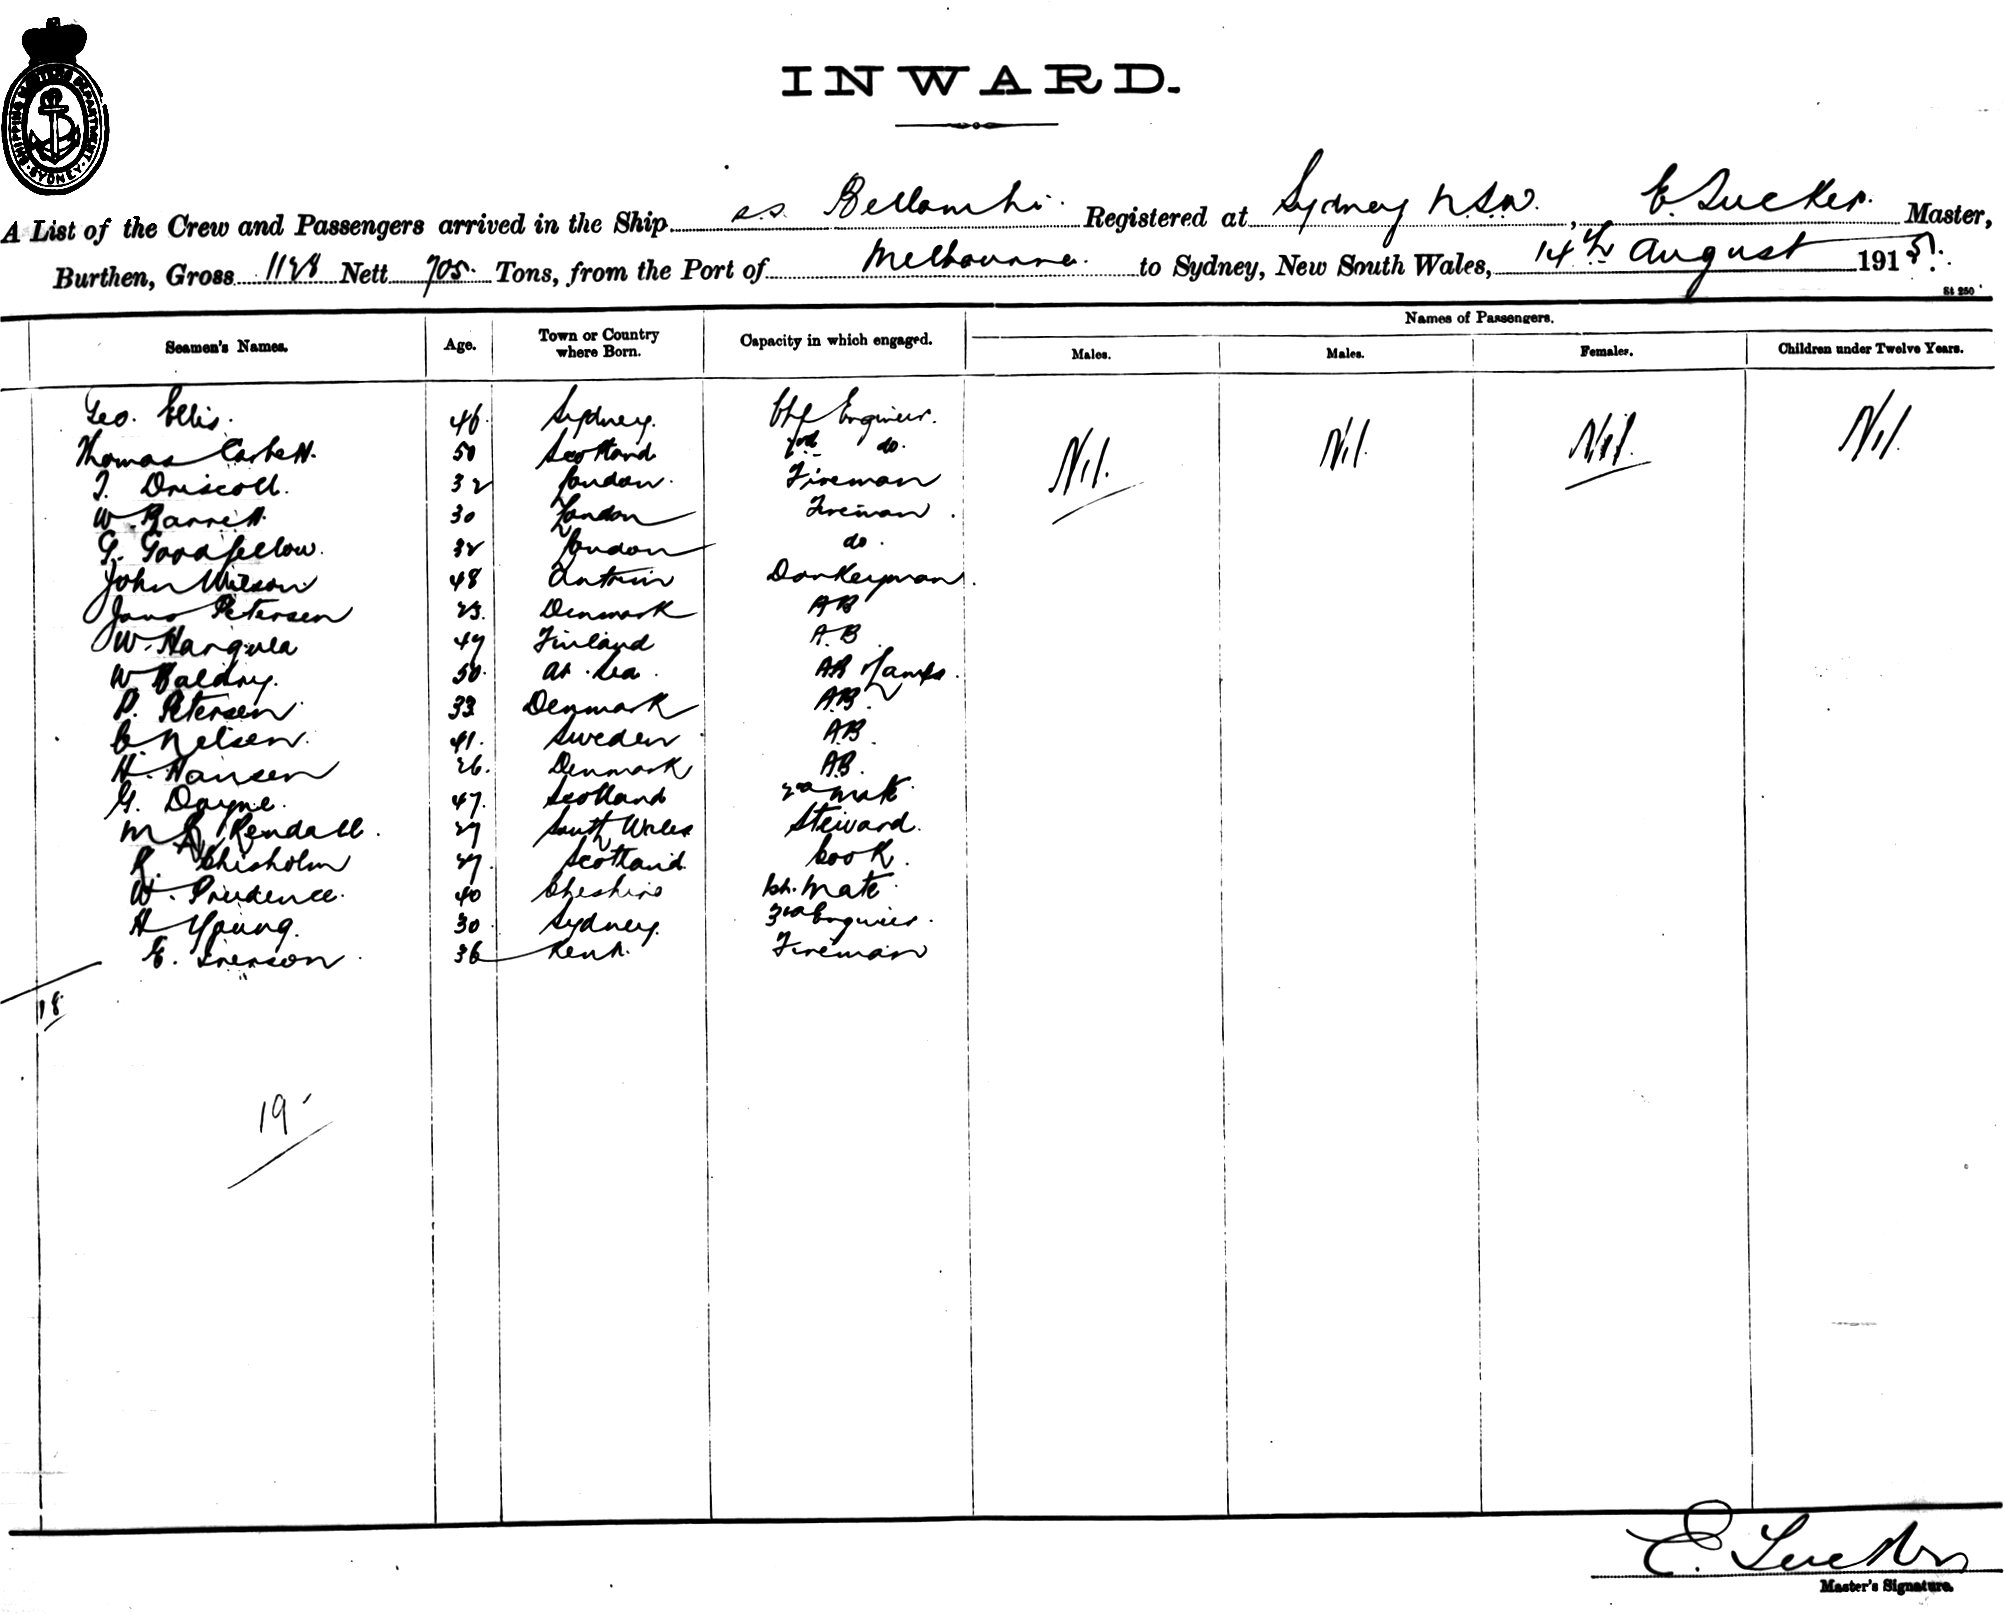 SHIPPING MASTER'S DEPARTMENT SYDNEY
INWARD.
A List of the Crew and Passengers arrived in the Ship s.s. Bellambi Registered at Sydney N.S.W., E. Tucker. Master,
Burthen, Gross Nett 705 Tons, from the Port of Melbourne to Sydney, New South Wales, 14th August 1915.
St 250
Seamen's Names. Age. Town or Country where Born. Capacity in which engaged. Names of Passengers.
Males. Males. Females. Children under Twelve Years.
Geo. Ellis. 46. Sydney. Chf Engineer. Nil. Nil. Nil. Nil.
Thomas Corbett. 50 Scotland 2nd do.
T. Driscoll. 32 London. Fireman
W. Barrett 30 London Fireman.
G. Goodfellow. 32 London do.
John Wilson 48 Antrim Donkeyman.
Jans Petersen 23. Denmark AB
W. Hangula 47 Finland A.B
W Baldry. 50. at Sea. AB Lamps.
P. Petersen 33 Denmark A.B.
C. Nelsen. 41. Sweden A.B.
H. Hansen 26. Denmark A.B.
G. Dayne. 47. Scotland 2nd Mate
M Rendall. 27 South Wales Steward.
R. Chisholm 27. Scotland. Cook.
W. Prudence. 40 Cheshire Ch. Mate.
H Young. 30. Sydney. 3rd Engineer.
E. Iverson. 36 Kent. Fireman
18
19
E. Tucker
Master's Signature.